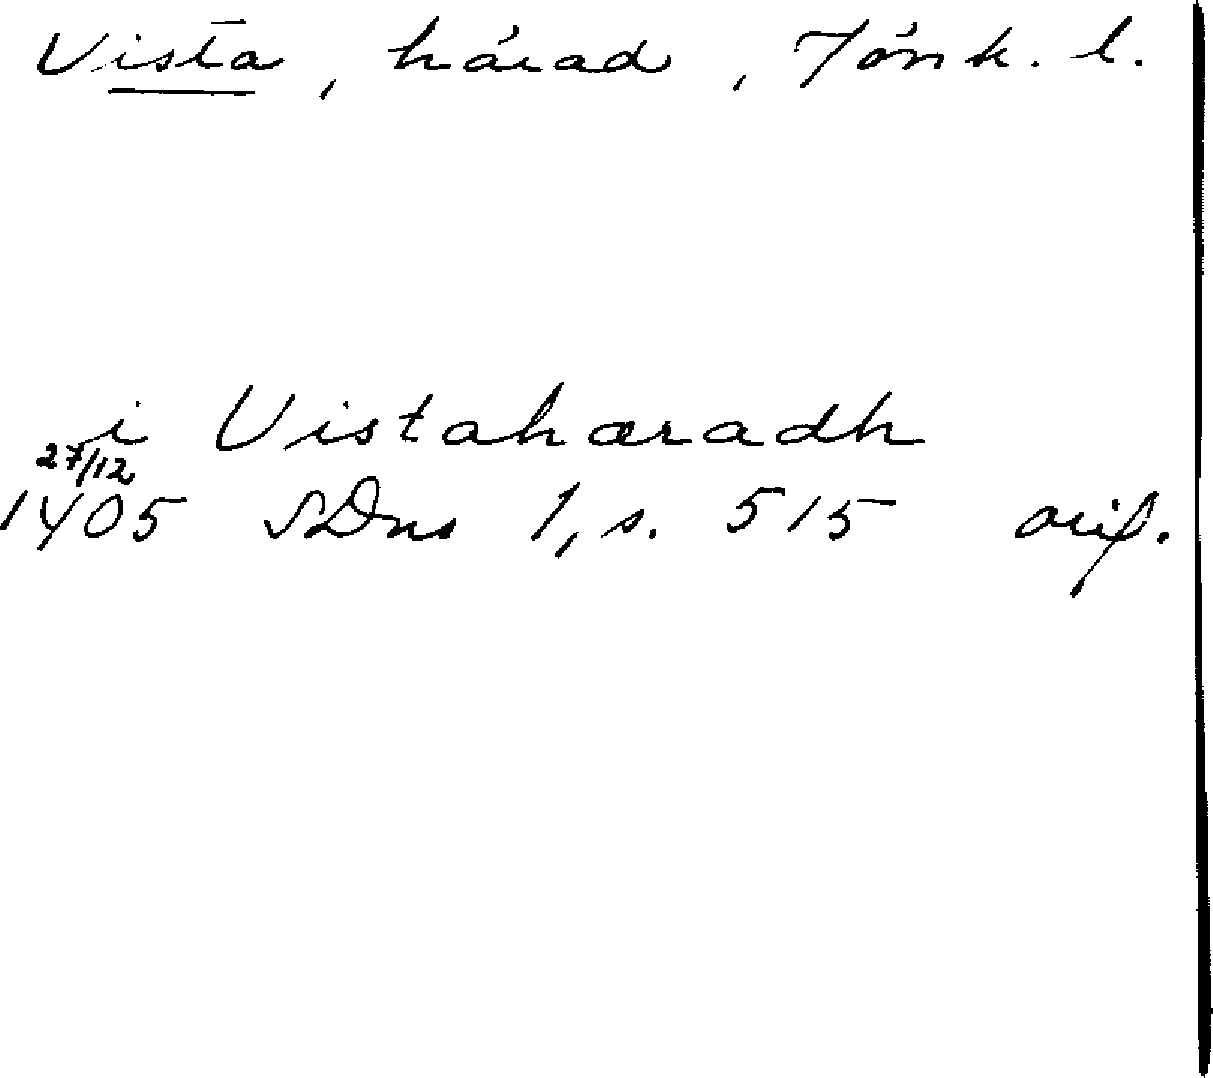 Vista, härad, Jönk. l.
i Vistahæradh
27/12
1405 SDns 1, s. 515 orig.